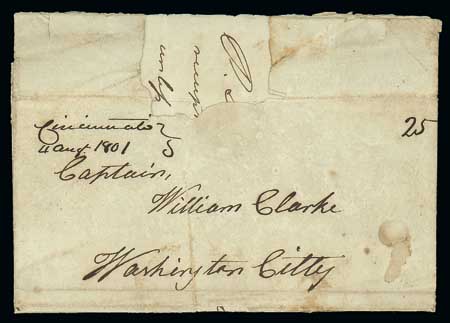 Cincinnati
4 augt 1801
25
Captain,
William Clarke
Washington Citty